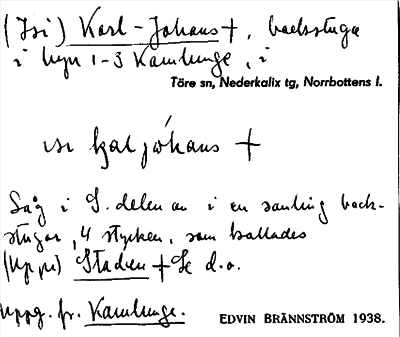 (Isi) Karl-Johans +, backstuga
i byn 1-3 Kamlunge, i
Töre sn, Nederkalix tg, Norrbottens l.
isi kɑl jóhans +
Låg i S. delen av i en samling back-
stugor, 4 stycken, som kallades
(Uppi) Staden + Se d.o.
Uppg. fr. Kamlunge.
EDVIN BRÄNNSTRÖM 1938.